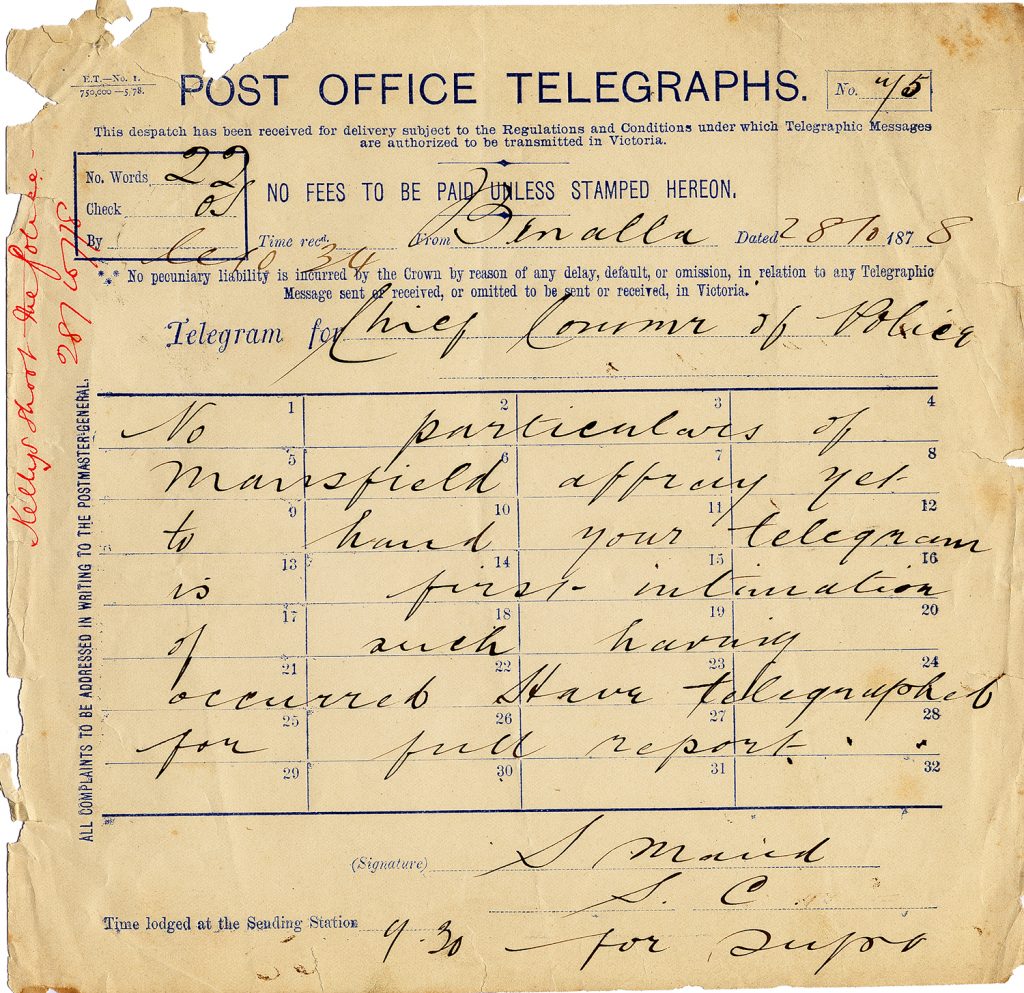 E.T.—No. 1.
750,000 —5.78.
POST OFFICE TELEGRAPHS.
No. 4/5
This despatch has been received for delivery subject to the Regulations and Conditions under which Telegraphic Messages
are authorized to be transmitted in Victoria.
No. Words 22
Check OS
By
NO FEES TO BE PAID UNLESS STAMPED HEREON.
Time recd. 10 34 From Benalla Dated 28/10 1878
*** No pecuniary liability is incurred by the Crown by reason of any delay, default, or omission, in relation to any Telegraphic
Message sent or received, or omitted to be sent or received, in Victoria.
Telegram for Chief Commr of Police
1 2 3 4
No particulars of
5 6 7 8
Mansfield affray yet
9 10 11 12
to hand your telegram
13 14 15 16
is first intimation
17 18 19 20
of such having
21 22 23 24
occurred Have telegraphed
25 26 27 28
for full report
29 30 31 32
(Signature) S Maud
S. C.
Time lodged at the Sending Station 9.30 for Supt
ALL COMPLAINTS TO BE ADDRESSED IN WRITING TO THE POSTMASTER-GENERAL.
Kellys shoot the police
28/10/78